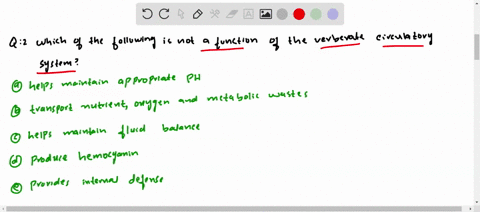 Q:2 which of the following is not a function of the verberate circulatory
system?
a helps maintain appropriate PH
b transport nutrient, oxygen and metabolic wastes
c helps maintain fluid balance
d produce hemocyanin
e provides internal defense